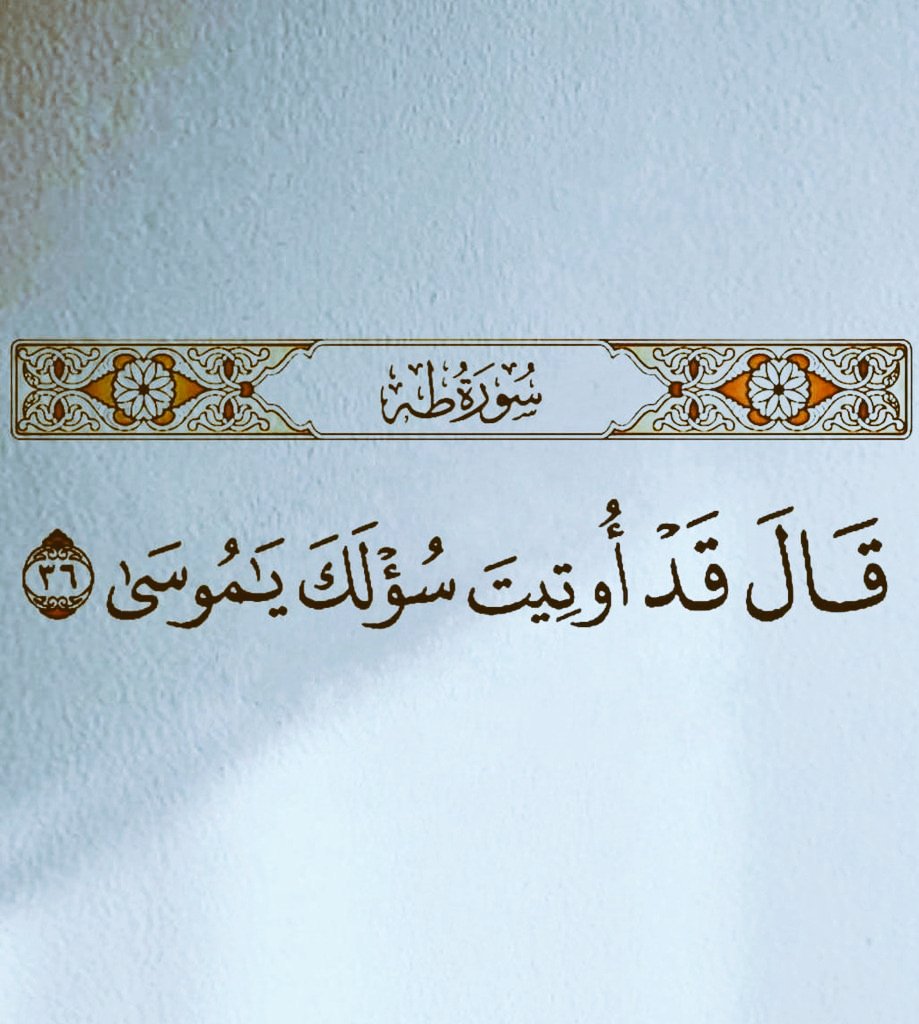 سُورَةُ طه
قَالَ قَدۡ أُوتِيتَ سُؤۡلَكَ يَٰمُوسَىٰ ٣٦